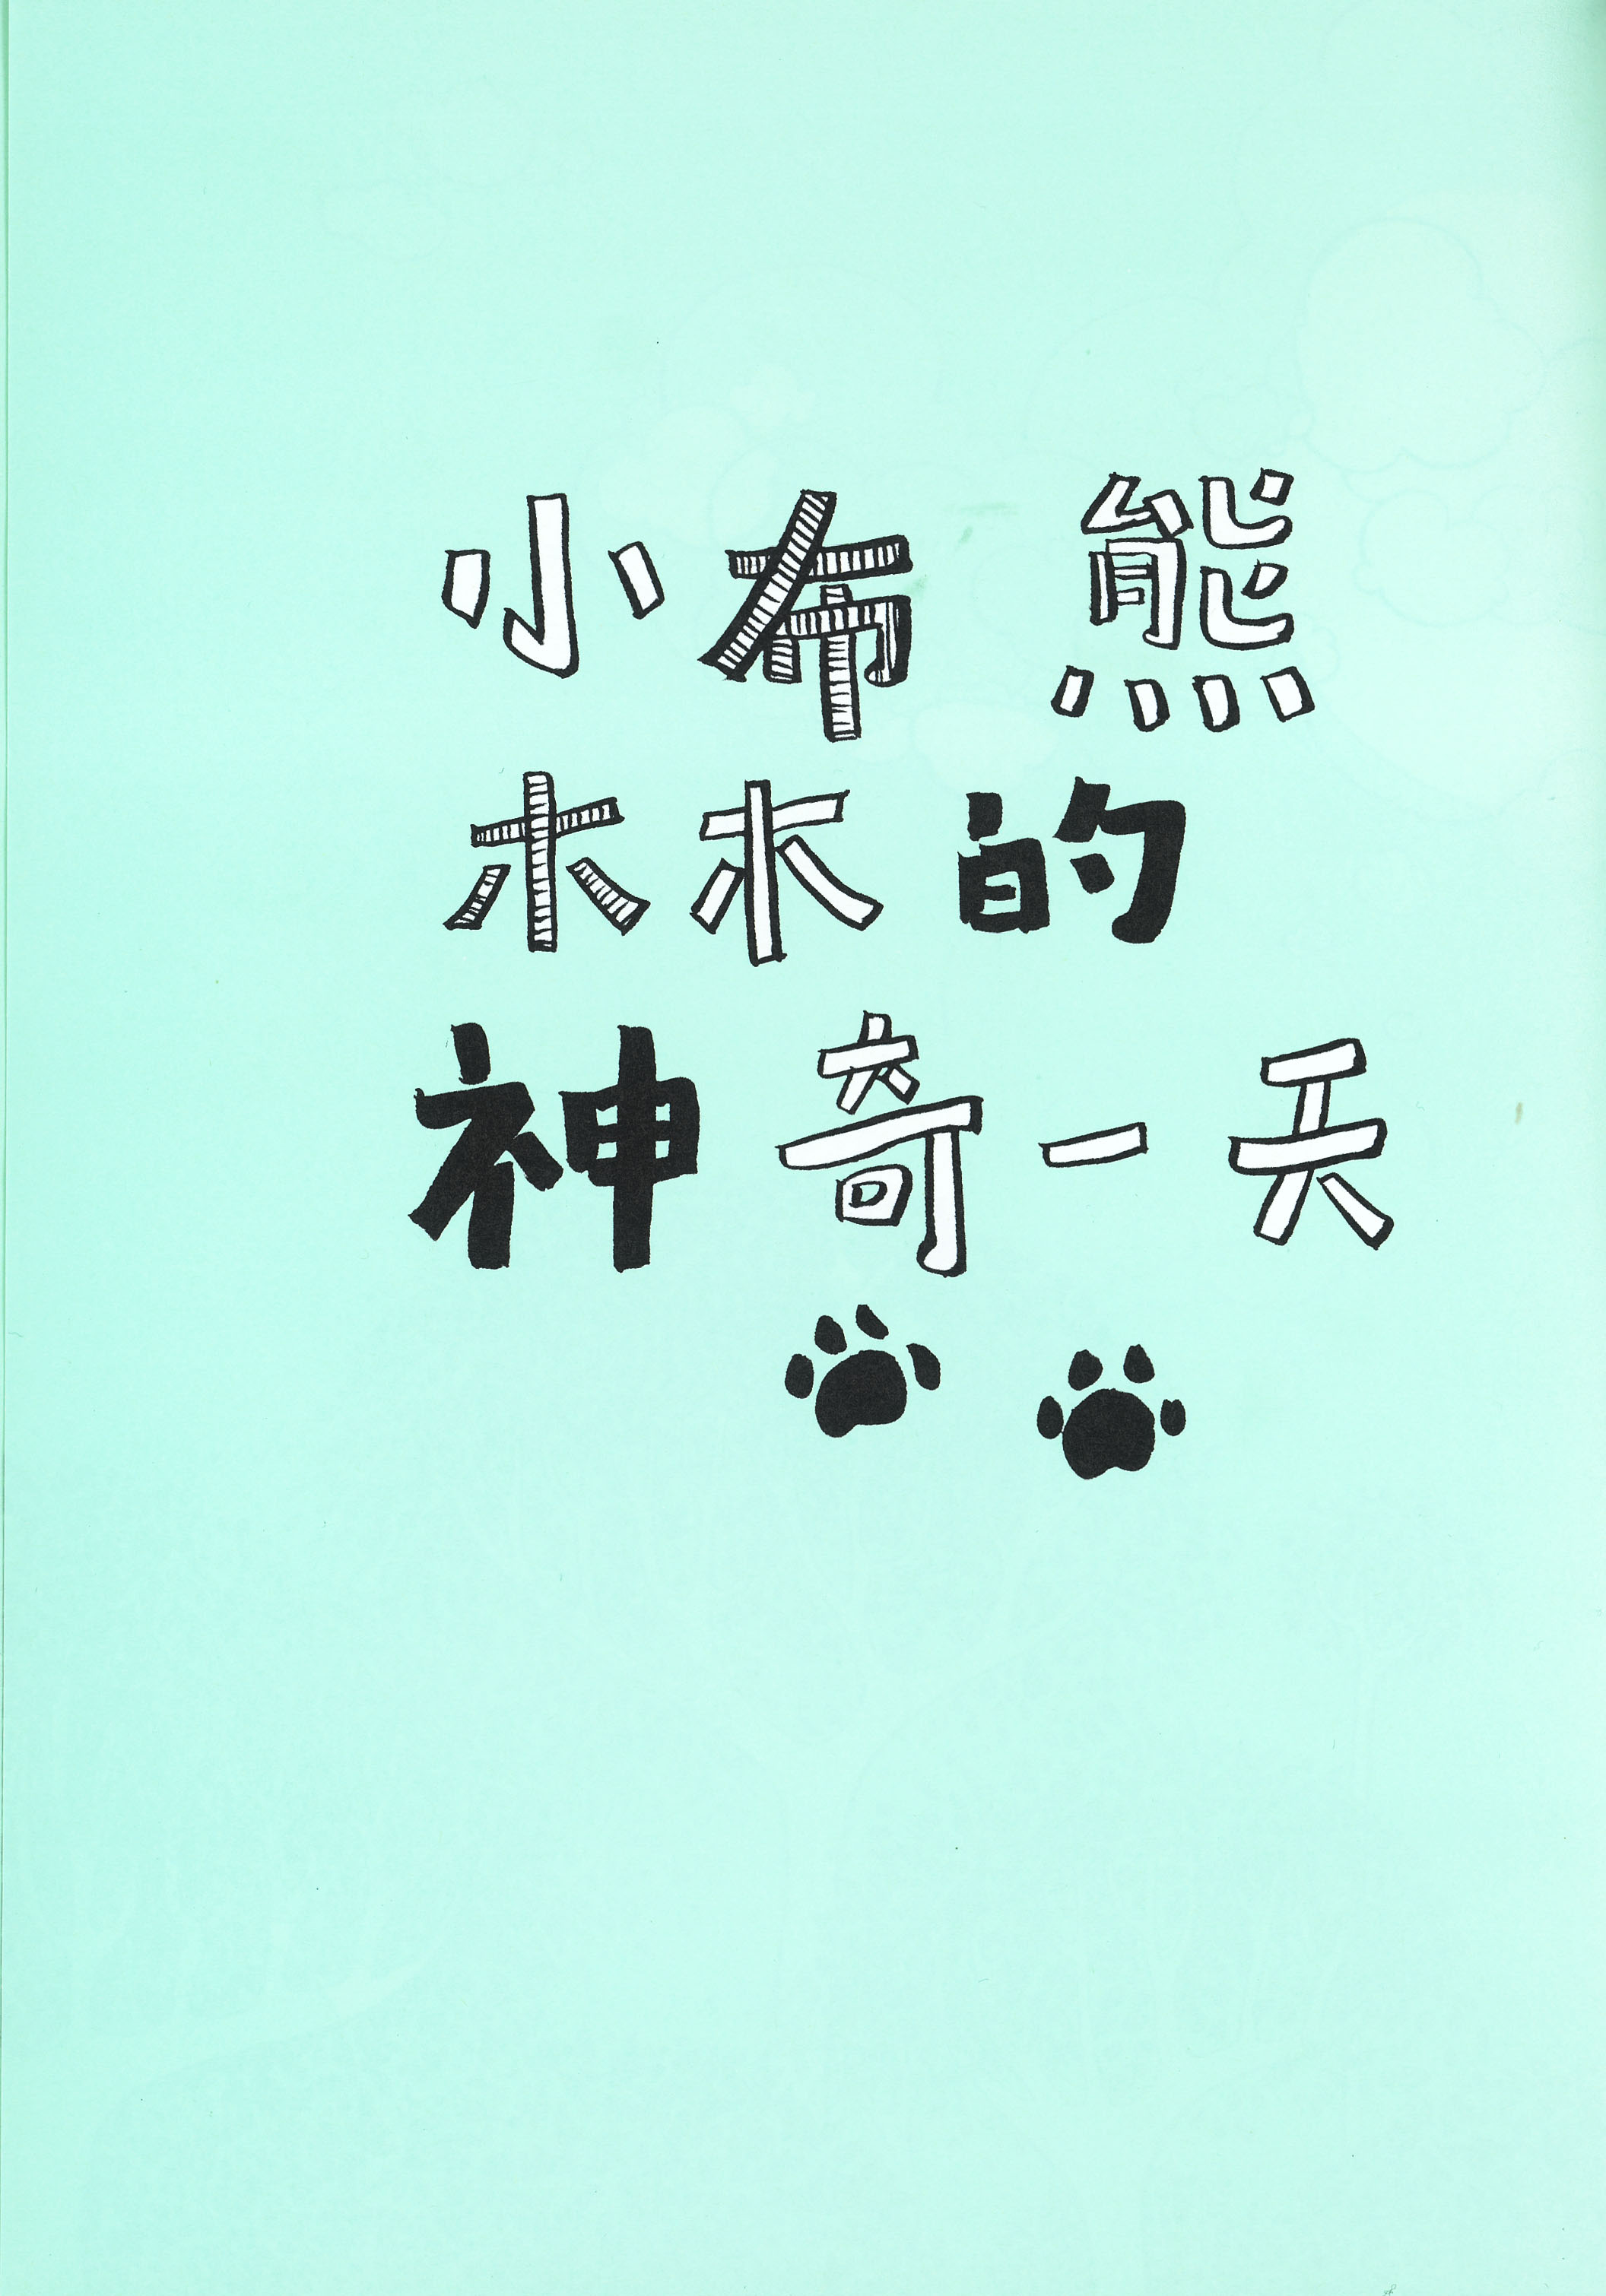 小布熊
木木的
神奇一天